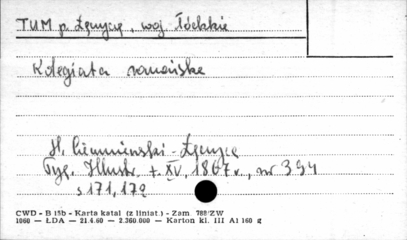 TUM p. Łęczycą, woj. Łódzkie
Kolegiata romańska
H. Ciemniewski - Łęczyca
Tyg. Illustr. t. XV, 1867 r., nr 394
s 171, 172
CWD - B 15b - Karta katal (z liniat.) - Zam. 788/ZW
1060 — ŁDA — 21.4.60 — 2.360.000 — Karton kl. III A1 160 g